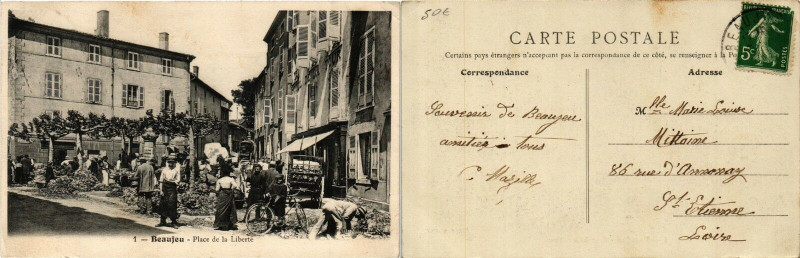 1 — Beaujeu - Place de la Liberté
50€
CARTE POSTALE
Certains pays étrangers n'acceptant pas la correspondance de ce côté, se renseigner à la Po
Correspondance
Adresse
5c
POSTES
Souvenir de Beaujeu
amitiés à tous
Mlle Marie Louise
Mittaine
86 rue d'Annonay
St. Etienne
Loire